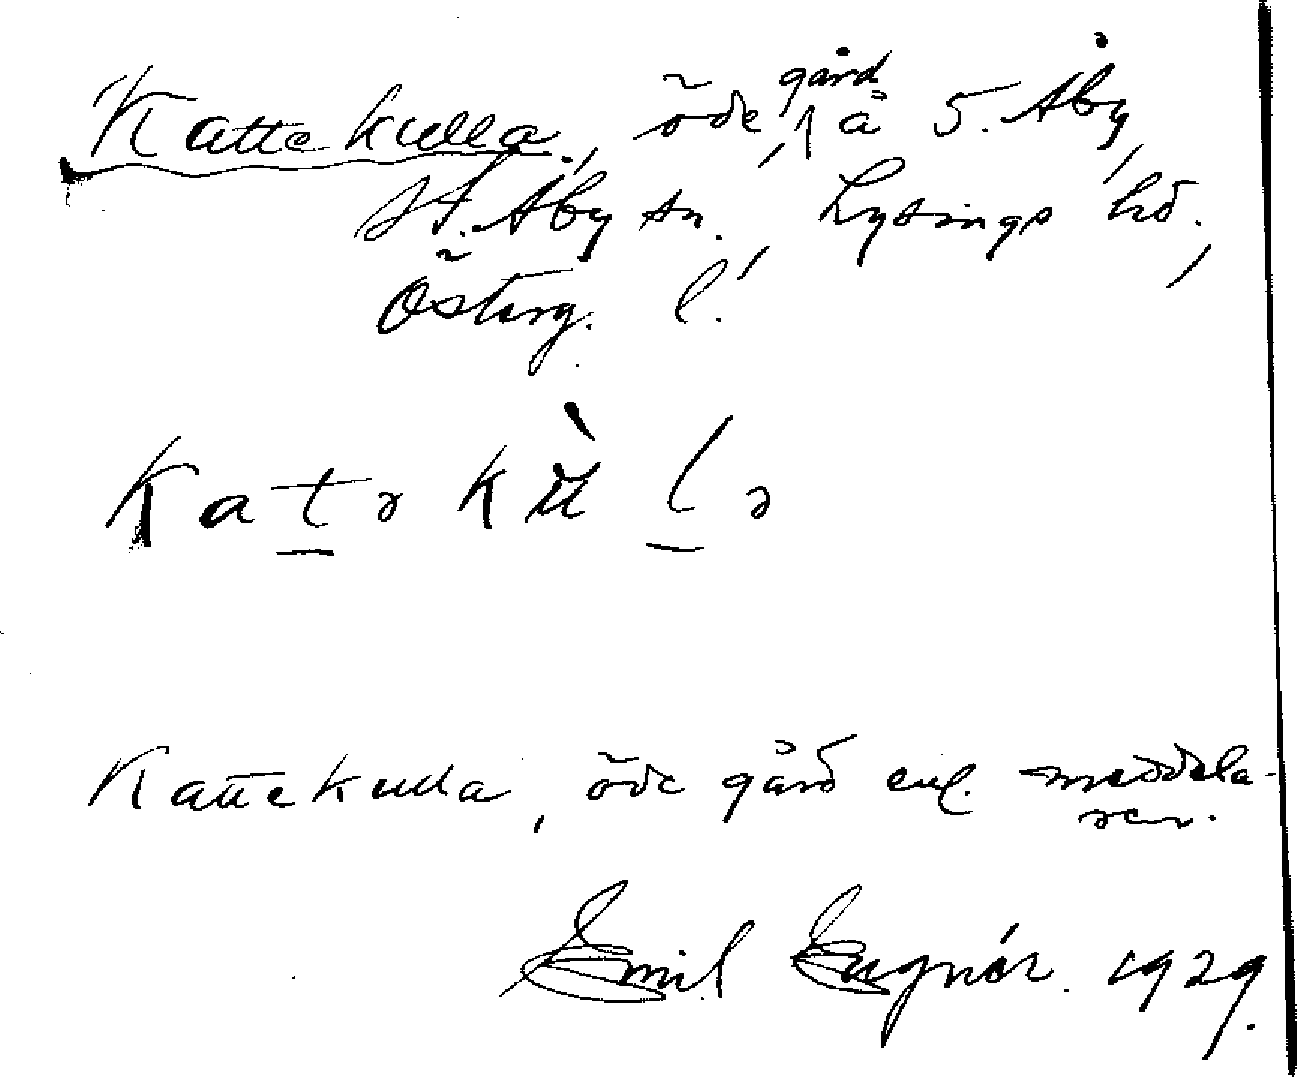 Kattekulla, öde gård å S. Åby,
St. Åby sn., Lysings hd.,
Österg. l.
Katəkùlə
Kattekulla, öde gård enl. meddela-
ren.
Emil Eugnér. 1929.